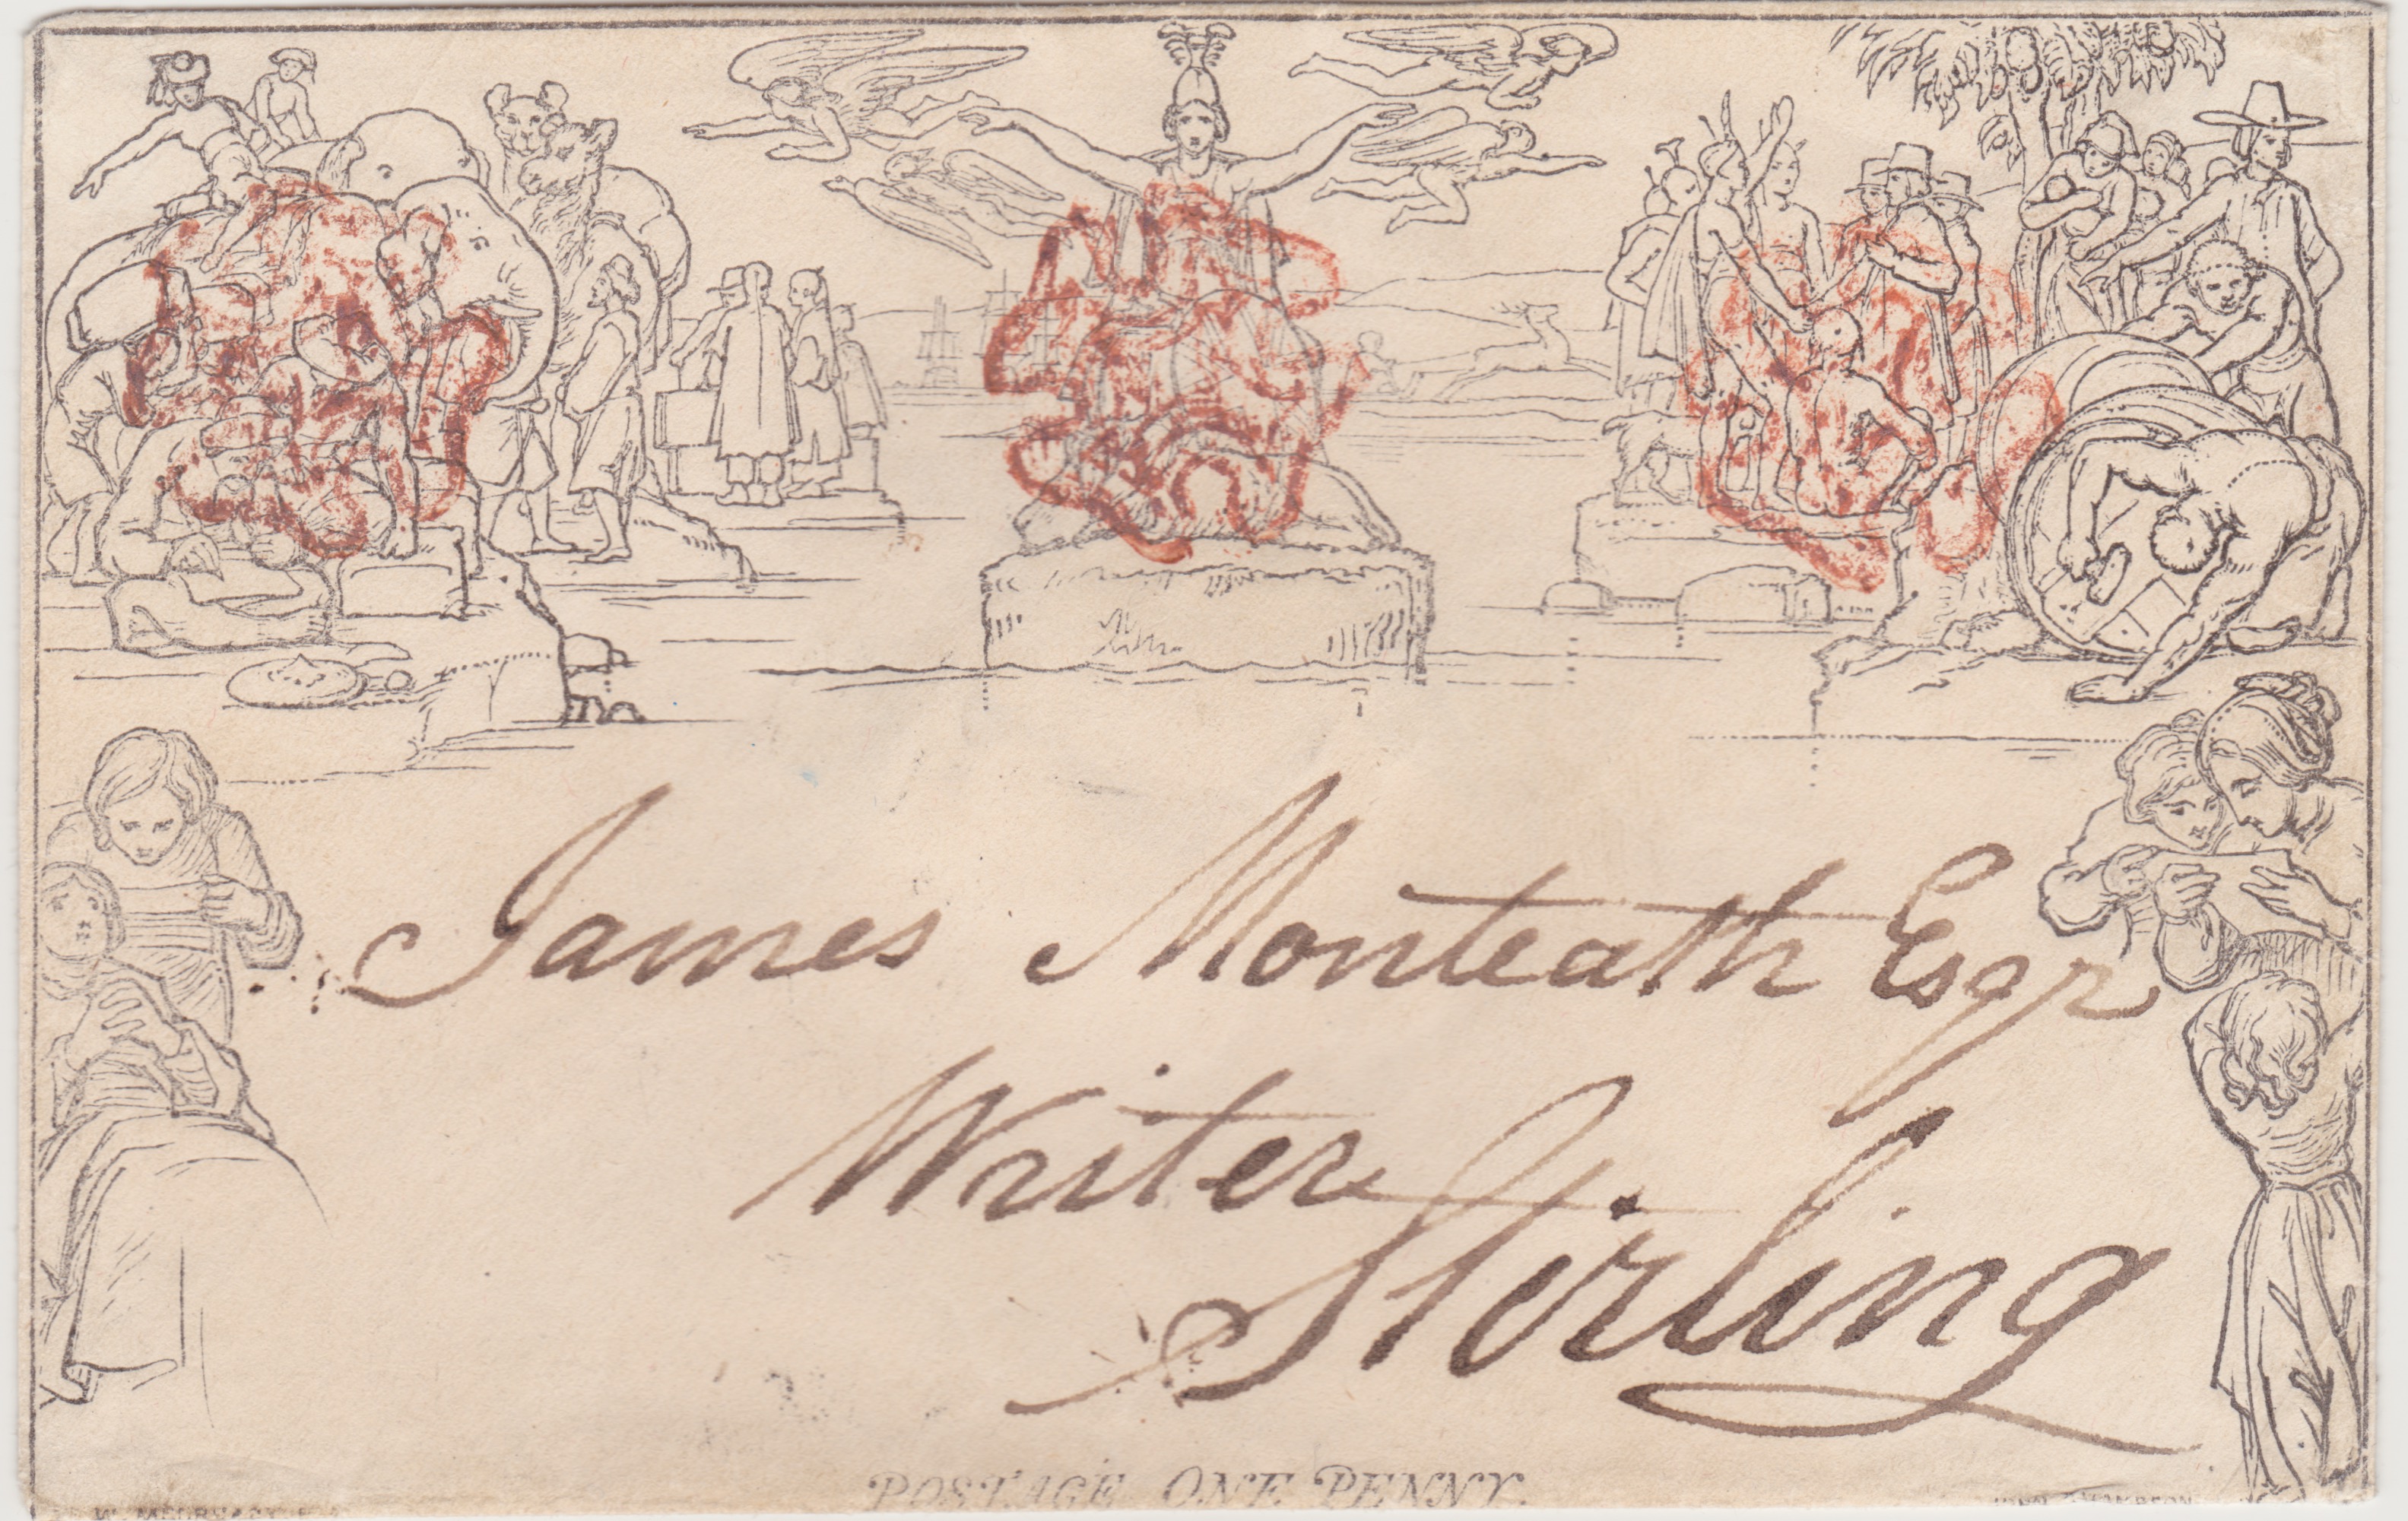 James Monteath Esqr
Writer
Stirling
POSTAGE ONE PENNY.
W. MULREADY R.A.
JOHN THOMPSON